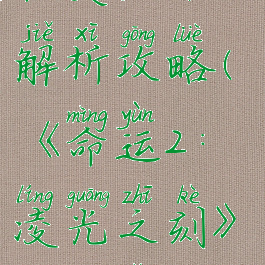 jiě xī gōng lüè
解析攻略(
mìng yùn
《命运2:
líng guāng zhī kè
凌光之刻》